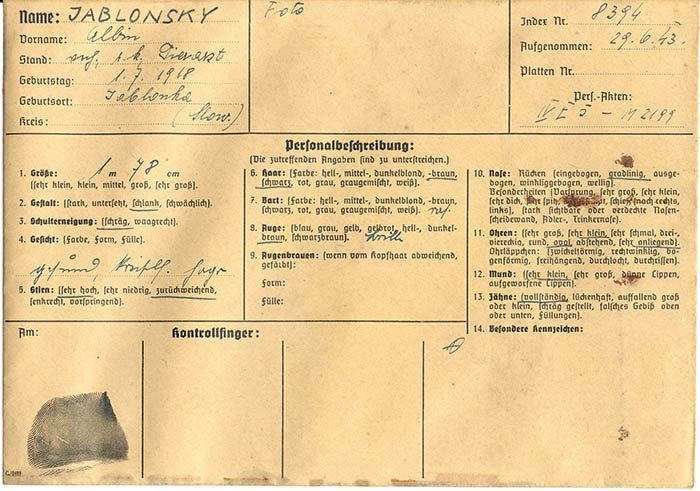 Name: JABLONSKY
Vorname: Albin
Stand: r.k. Tierarzt
Geburtstag: 1.7.1918
Geburtsort: Jablonka
Kreis: (Slow.)
Foto
Index Nr. 8394
Aufgenommen: 29.6.43.
Platten Nr.
Pers.-Akten:
IV E 5 – M 2199
Personalbeschreibung:
(Die zutreffenden Angaben sind zu unterstreichen.)
1. Größe: 1 m 78 cm
(sehr klein, klein, mittel, groß, sehr groß).
2. Gestalt: (stark, untersetzt, schlank, schwächlich).
3. Schulterneigung: (schräg, waagrecht).
4. Gesicht: (Farbe, Form, Fülle).
gesund,
5. Stirn: (sehr hoch, sehr niedrig, zurückweichend,
senkrecht, vorspringend).
6. Haar: (Farbe: hell-, mittel-, dunkelblond, -braun,
schwarz, rot, grau, graugemischt, weiß).
7. Bart: (Farbe: hell-, mittel-, dunkelblond, -braun,
schwarz, rot, grau, graugemischt, weiß).
8. Auge: (blau, grau, gelb, gelbrot, hell-, dunkel-
braun, schwarzbraun).
9. Augenbrauen: (wenn vom Kopfhaar abweichend,
gefärbt):
Form:
Fülle:
10. Nase: Rücken (eingebogen, gradlinig, ausge-
bogen, winkliggebogen, wellig).
Besonderheiten (Vorsprung, sehr groß, sehr klein,
sehr dick, sehr schief nach rechts,
links), stark sichtbare oder verdeckte Nasen-
scheidewand, Adler-, Trinkernase).
11. Ohren: (sehr groß, sehr klein, sehr schmal, drei-,
viereckig, rund, oval, abstehend, sehr anliegend).
Ohrläppchen: (zwickelförmig, rechtwinklig, bo-
genförmig, freihängend, durchlocht, durchrissen).
12. Mund: (sehr klein, sehr groß, dünne Lippen,
aufgeworfene Lippen).
13. Zähne: (vollständig, lückenhaft, auffallend groß
oder klein, schräg gestellt, falsches Gebiß oben
oder unten, Füllungen).
14. Besondere Kennzeichen:
Am:
Kontrollfinger: